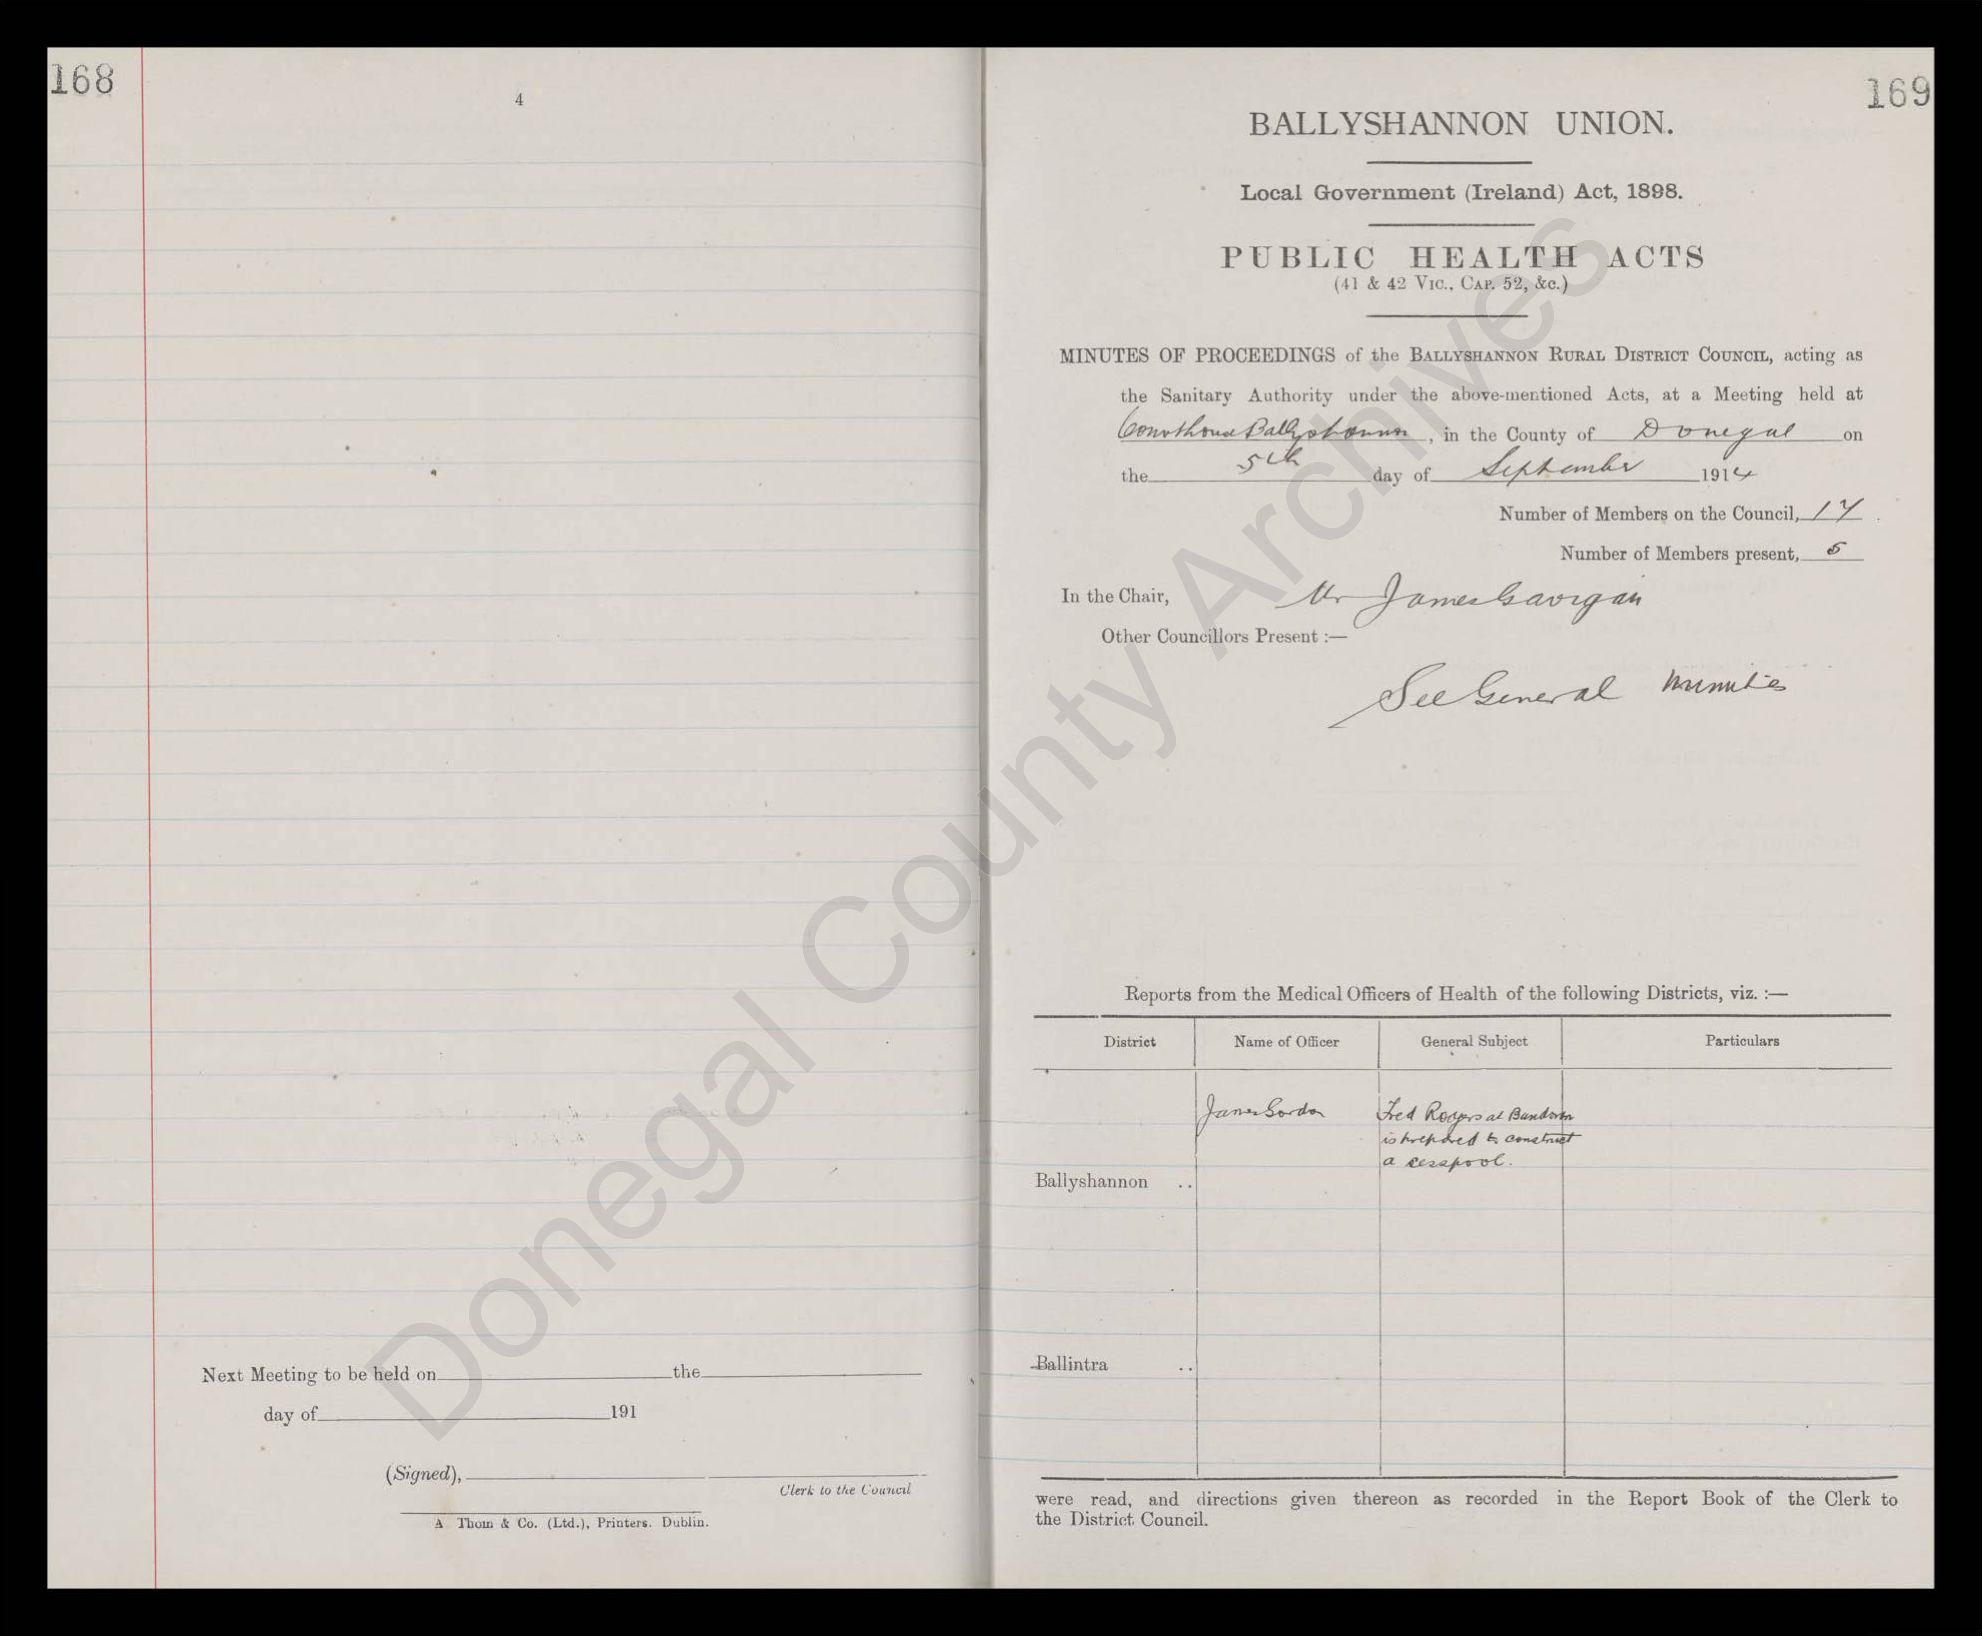 168
4
Next Meeting to be held on the
day of 191
(Signed),
Clerk to the Council
A Thom & Co. (Ltd.), Printers. Dublin.
169
BALLYSHANNON UNION.
Local Government (Ireland) Act, 1898.
PUBLIC HEALTH ACTS
(41 & 42 VIC., CAP. 52, &c.)
MINUTES OF PROCEEDINGS of the BALLYSHANNON RURAL DISTRICT COUNCIL, acting as
the Sanitary Authority under the above-mentioned Acts, at a Meeting held at
Courthouse Ballyshannon, in the County of Donegal on
the 5th day of September 1914
Number of Members on the Council, 17.
Number of Members present, 5
In the Chair, Mr James Gavigan
Other Councillors Present :—
See General Minutes
Reports from the Medical Officers of Health of the following Districts, viz. :—
District Name of Officer General Subject Particulars
James Gordon Fred Rogers at Bundoran
is prepared to construct
a cesspool.
Ballyshannon ..
Ballintra ..
were read, and directions given thereon as recorded in the Report Book of the Clerk to
the District Council.
Donegal County Archives